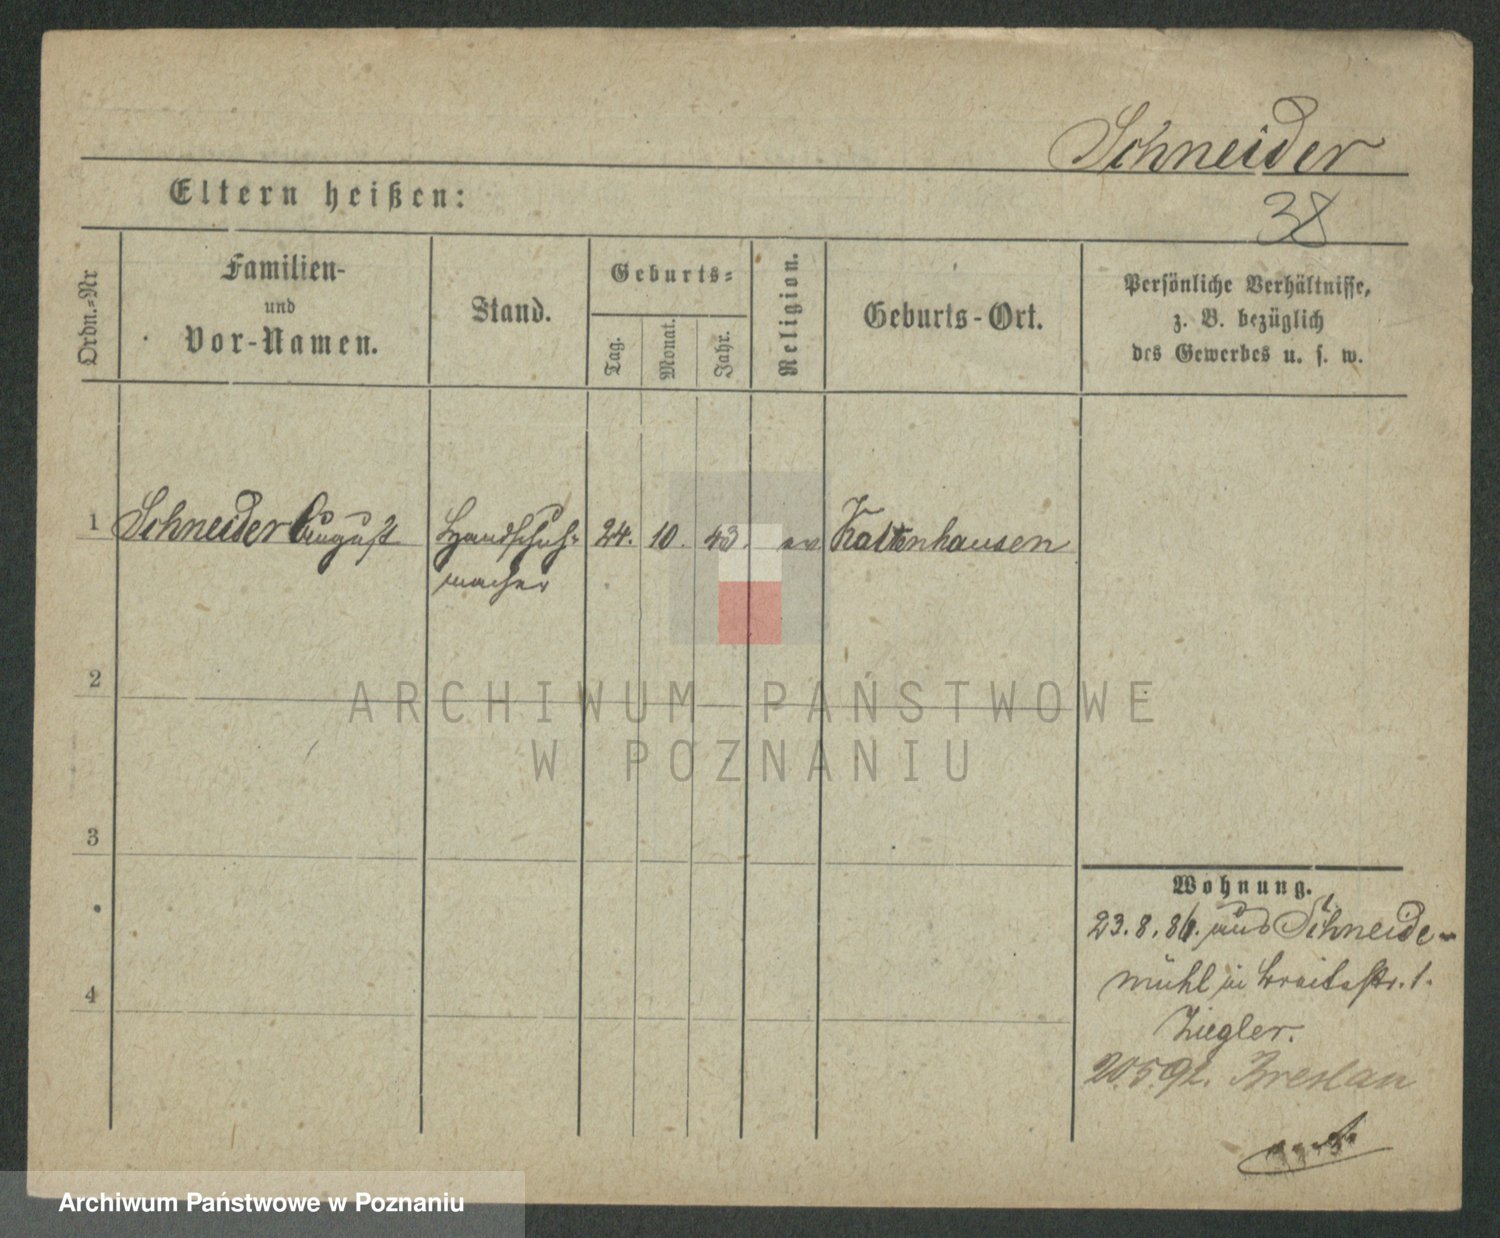 Schneider
38
Eltern heißen:
Ordn.-Nr
Familien-
und
Vor-Namen.
Stand.
Geburts=
Tag.
Monat.
Jahr.
Religion.
Geburts-Ort.
Persönliche Verhältnisse,
z. B. bezüglich
des Gewerbes u. s. w.
1 Schneider August Handschuh= 24. 10. 43. ev Kaltenhausen
macher
2
ARCHIWUM PAŃSTWOWE
W POZNANIU
3
Wohnung.
23.8.86. aus Schneide-
mühl in Breitestr. 1.
4
Ziegler.
20.5.92. Breslau
Archiwum Państwowe w Poznaniu